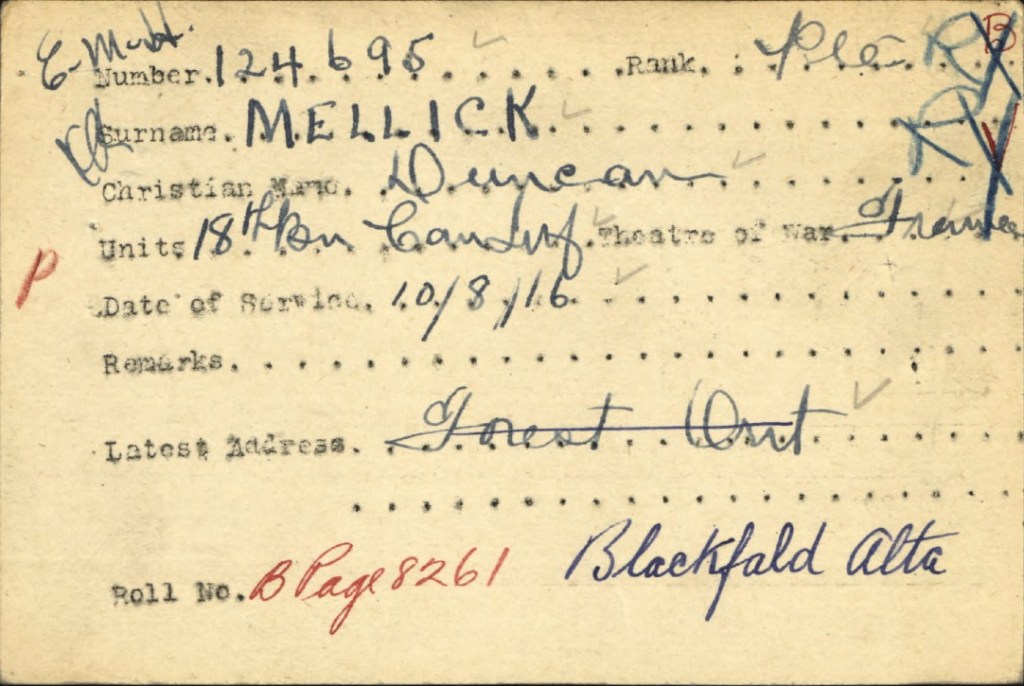 Number. 124695 Rank. Pte
Surname. MELLICK
Christian Name. Duncan
Units 18th Bn Can Inf. Theatre of War. France
Date of Service. 10/8/16
Remarks.
Latest Address. Forest Ont
Blackfald Alta
Roll No. B Page 8261
P
B